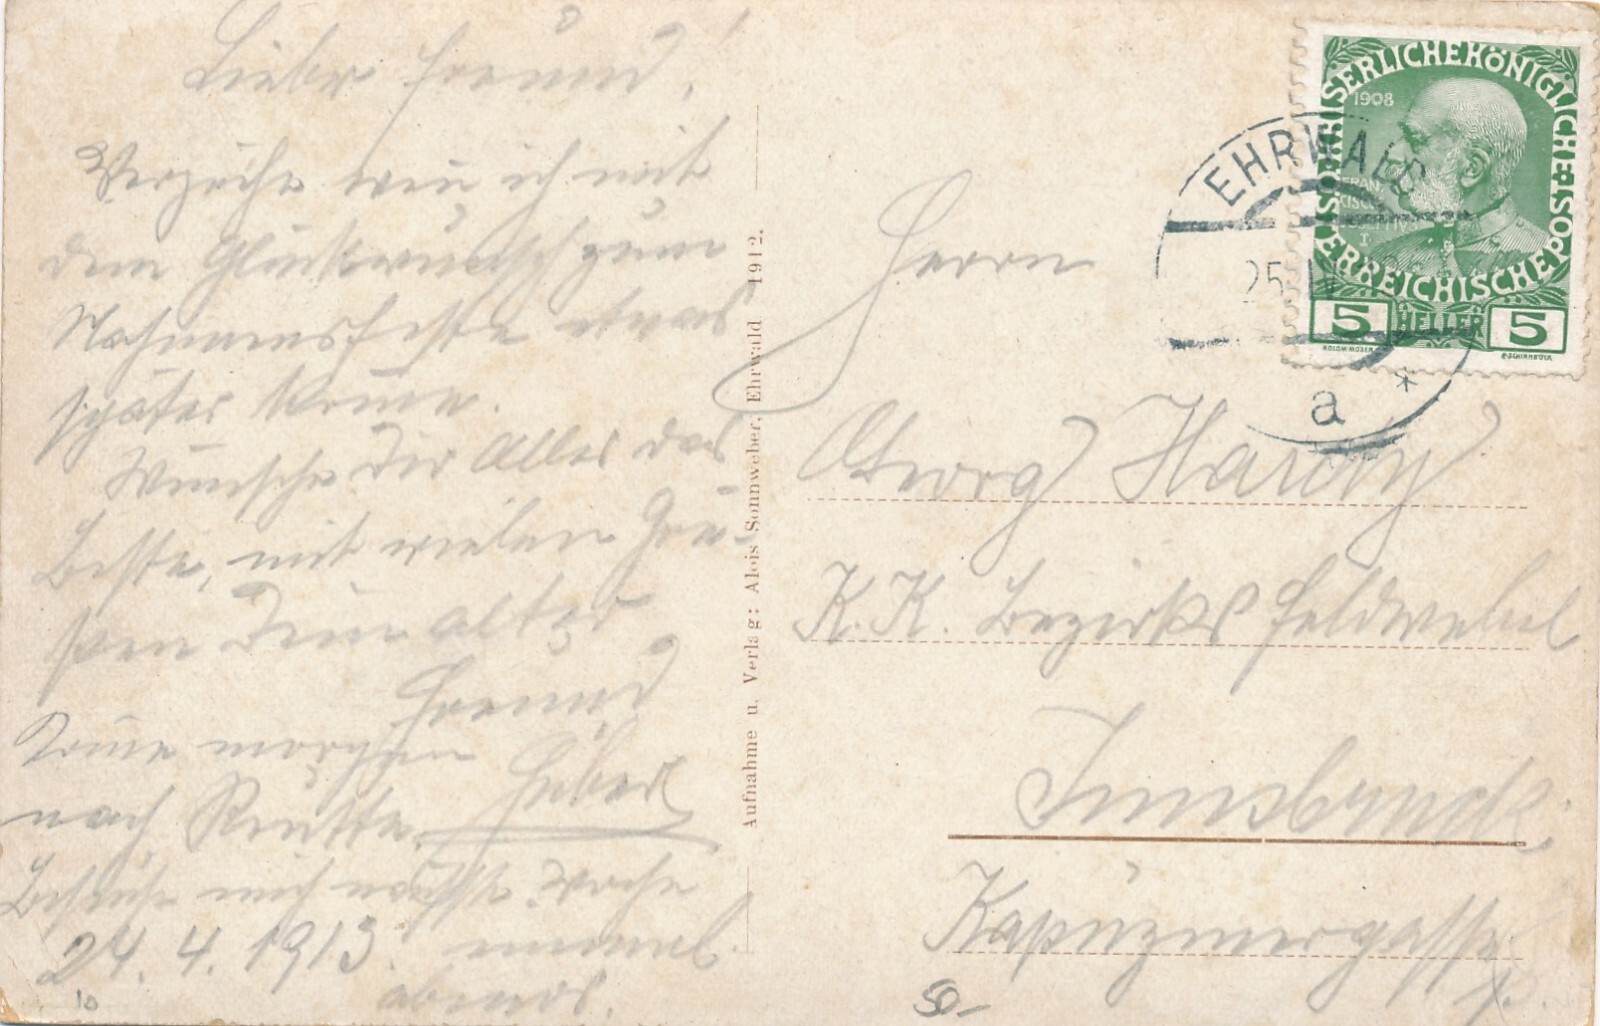 Lieber Freund!
Verzeihe wen ich mit
dem Glückwunsch zum
Nahmensfeste etwas
später komme.
Wünsche Dir Alles das
Beste, mit vielen Grü-
ßen Dein alter
Freund
Huber
Komme morgen
nach Reutte.
Besuche mich nächste Woche
einmal
abends.
24. 4. 1913.
10
Aufnahme u. Verlag: Alois Sonnweber, Ehrwald 1912.
KAISERLICHEKÖNIGLICHE ÖSTERREICHISCHE POST
1908
FRAN
CISC
IOSEPHVS
I
5 HELLER 5
KOLOM·MOSER
F·SCHIRNBÖCK
EHRWALD
25 IV
a *
Herrn
Georg Hardy
K. K. Bezirks Feldwebel
Innsbruck
Kapuzinergasse
50-